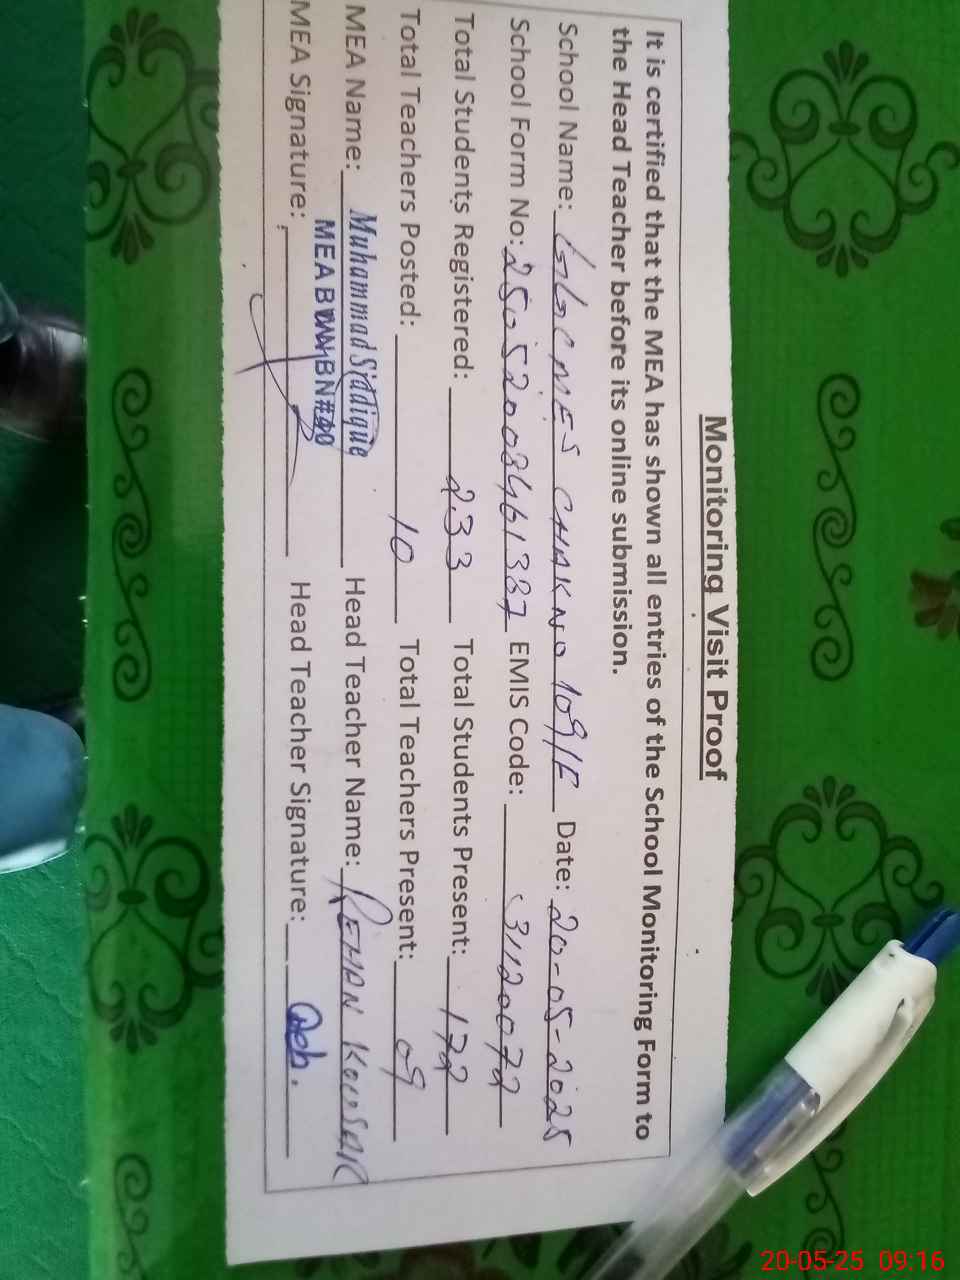 Monitoring Visit Proof
It is certified that the MEA has shown all entries of the School Monitoring Form to
the Head Teacher before its online submission.
School Name: GGCMES CHAK NO 109/E Date: 20-05-2025
School Form No: 25052008461387 EMIS Code: 31120072
Total Students Registered: 233 Total Students Present: 172
Total Teachers Posted: 10 Total Teachers Present: 09
MEA Name: Muhammad Siddique Head Teacher Name: REMAN KOUSAR
MEA
MEA Signature: Head Teacher Signature:
20-05-25 09:16